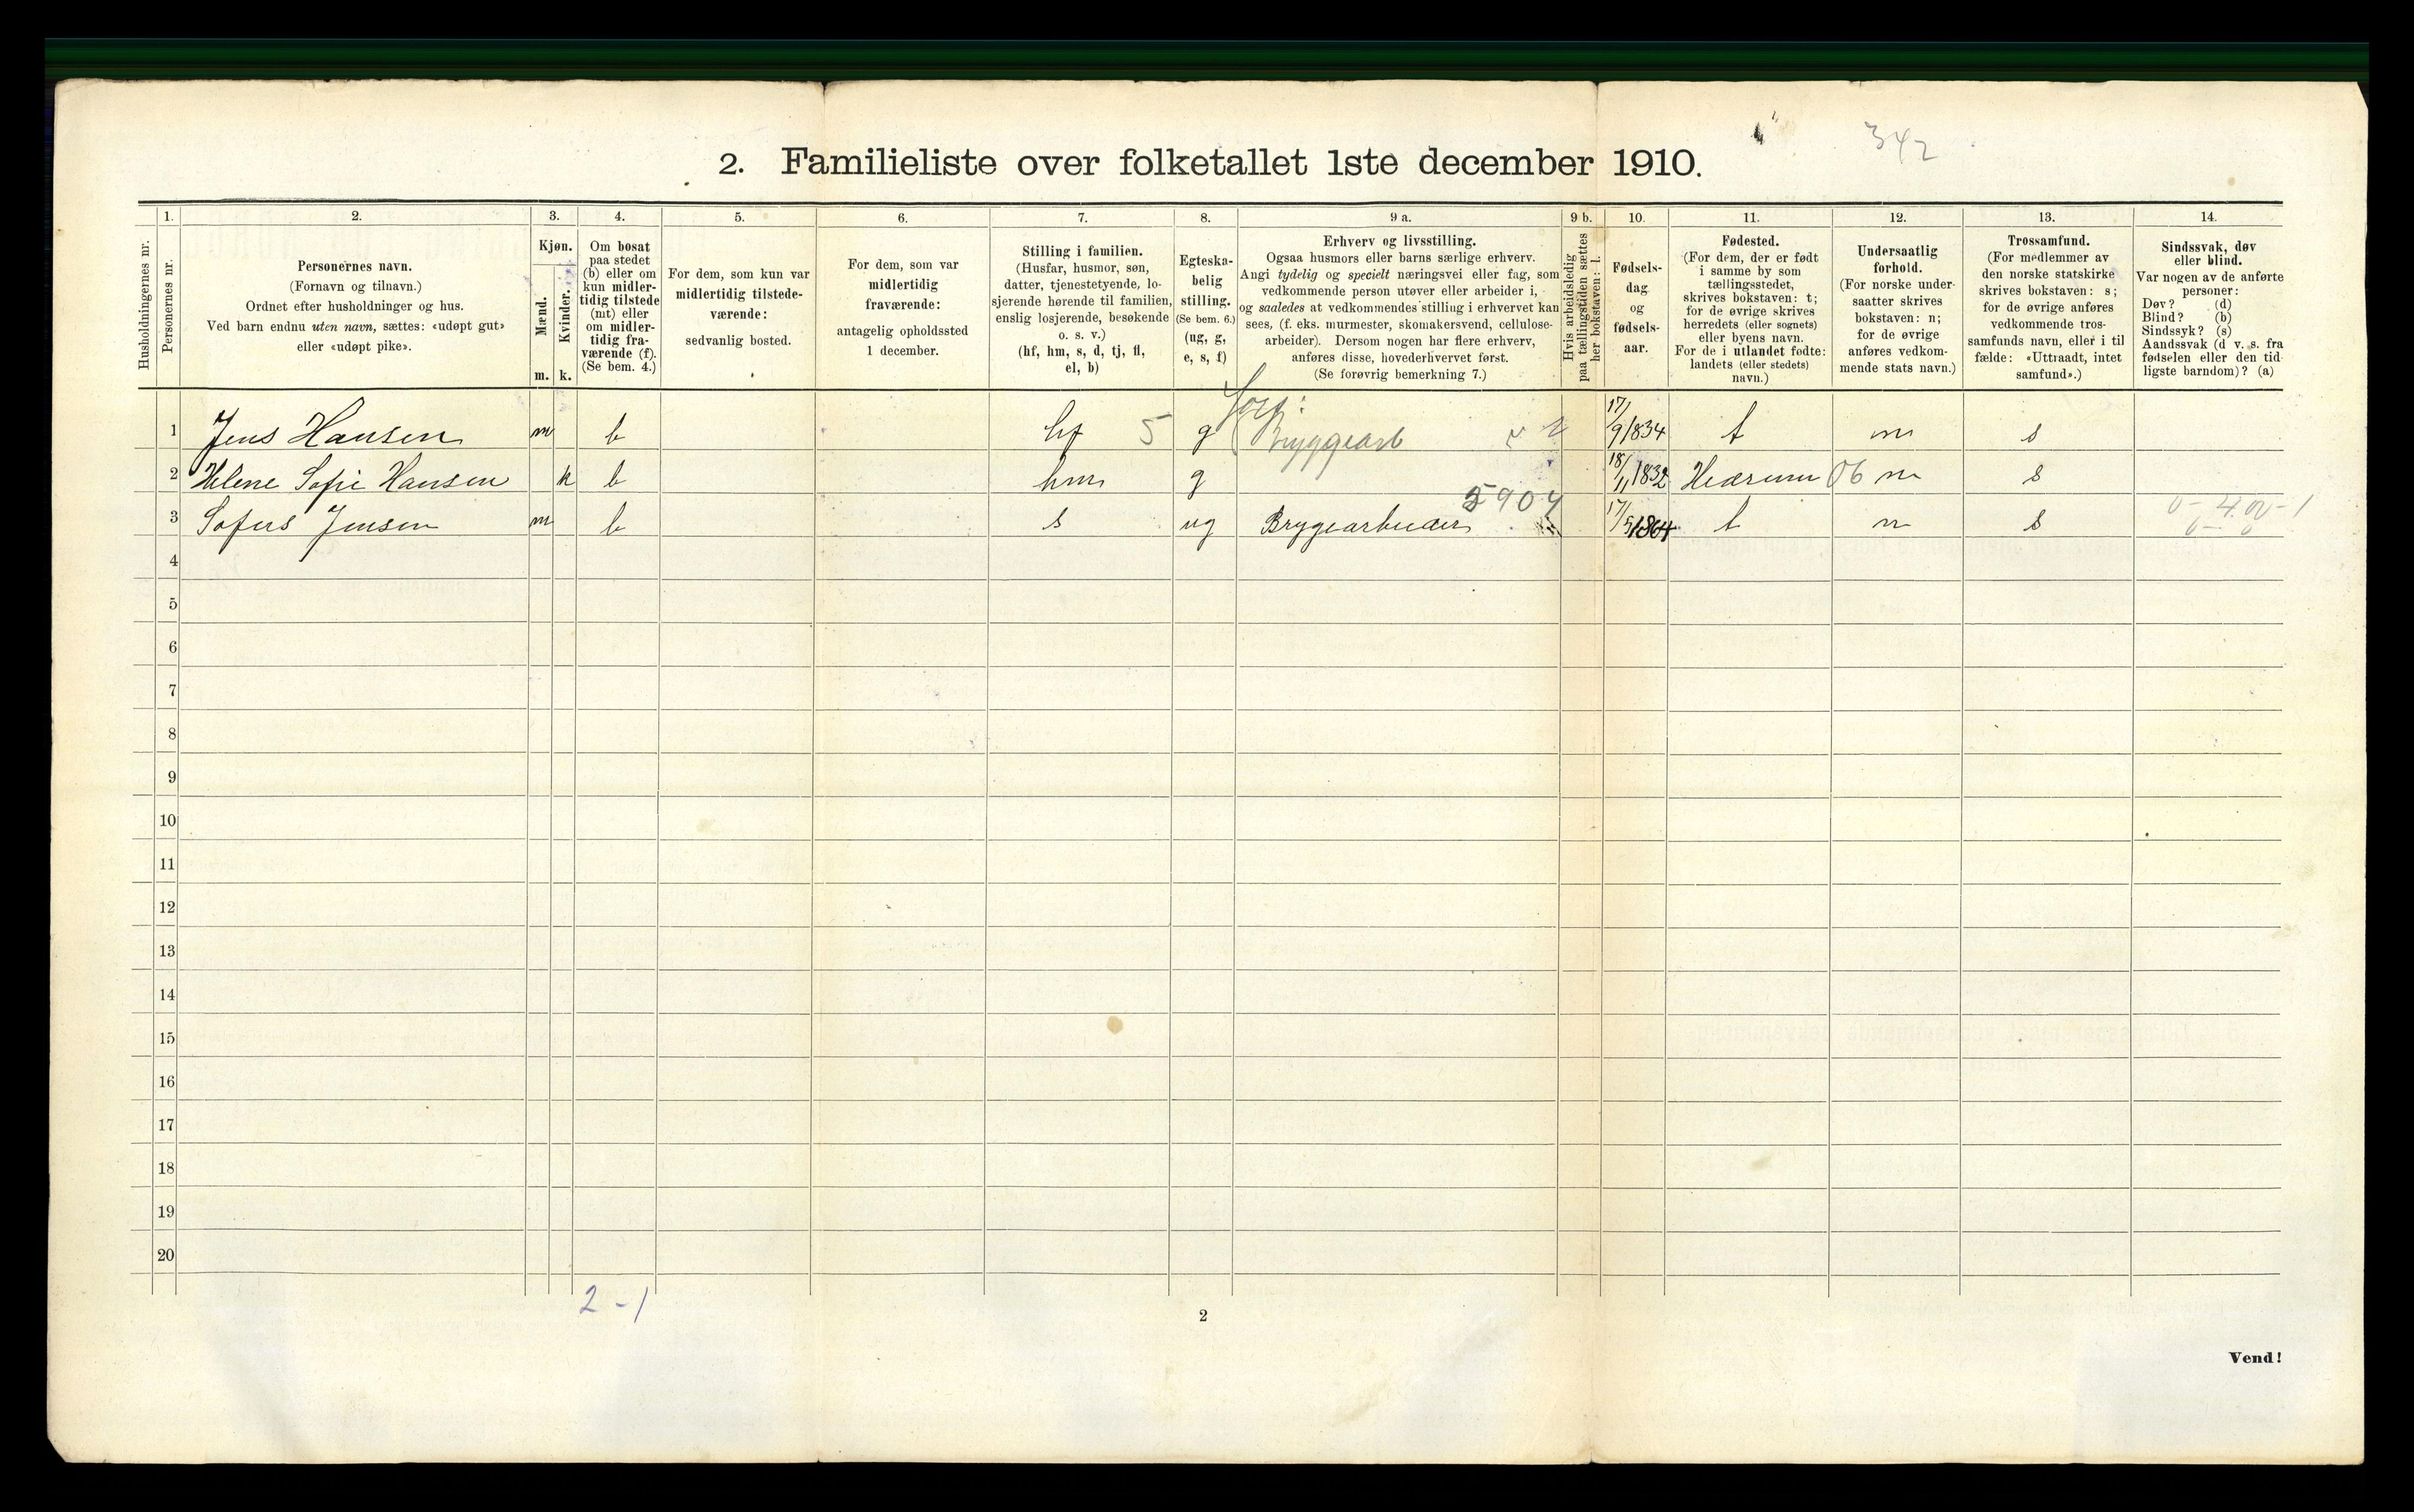 342
2. Familieliste over folketallet 1ste december 1910.
Husholdningernes nr.
1.
Personernes nr.
2.
Personernes navn.
(Fornavn og tilnavn.)
Ordnet efter husholdninger og hus.
Ved barn endnu uten navn, sættes: «udøpt gut»
eller «udøpt pike».
3.
Kjøn.
Mænd.
Kvinder.
m. k.
4.
Om bosat
paa stedet
(b) eller om
kun midler-
tidig tilstede
(mt) eller
om midler-
tidig fra-
værende (f).
(Se bem. 4.)
5.
For dem, som kun var
midlertidig tilstede-
værende:
sedvanlig bosted.
6.
For dem, som var
midlertidig
fraværende:
antagelig opholdssted
1 december.
7.
Stilling i familien.
(Husfar, husmor, søn,
datter, tjenestetyende, lo-
sjerende hørende til familien,
enslig losjerende, besøkende
o. s. v.)
(hf, hm, s, d, tj, fl,
el, b)
8.
Egteska-
belig
stilling.
(Se bem. 6.)
(ug, g,
e, s, f)
9 a.
Erhverv og livsstilling.
Ogsaa husmors eller barns særlige erhverv.
Angi tydelig og specielt næringsvei eller fag, som
vedkommende person utøver eller arbeider i,
og saaledes at vedkommendes stilling i erhvervet kan
sees, (f. eks. murmester, skomakersvend, cellulose-
arbeider). Dersom nogen har flere erhverv,
anføres disse, hovederhvervet først.
(Se forøvrig bemerkning 7.)
9 b.
Hvis arbeidsledig
paa tællingstiden sættes
her bokstaven: l.
10.
Fødsels-
dag
og
fødsels-
aar.
11.
Fødested.
(For dem, der er født
i samme by som
tællingsstedet,
skrives bokstaven: t;
for de øvrige skrives
herredets (eller sognets)
eller byens navn.
For de i utlandet fødte:
landets (eller stedets)
navn.)
12.
Undersaatlig
forhold.
(For norske under-
saatter skrives
bokstaven: n;
for de øvrige
anføres vedkom-
mende stats navn.)
13.
Trossamfund.
(For medlemmer av
den norske statskirke
skrives bokstaven: s;
for de øvrige anføres
vedkommende tros-
samfunds navn, eller i til
fælde: «Uttraadt, intet
samfund».)
14.
Sindssvak, døv
eller blind.
Var nogen av de anførte
personer:
Døv? (d)
Blind? (b)
Sindssyk? (s)
Aandssvak (d v. s. fra
fødselen eller den tid-
ligste barndom)? (a)
1 Jens Hansen m b hf 5 g Bryggearb 17/9 1834 t n s
2 Helene Sofie Hansen k b hm g 18/11 1832 06 n s
5904
3 Sofus Jensen m b s ug Brygearbeider 17/5 1864 t n s
4
5
6
7
8
9
10
11
12
13
14
15
16
17
18
19
20
2 - 1
2
Vend!